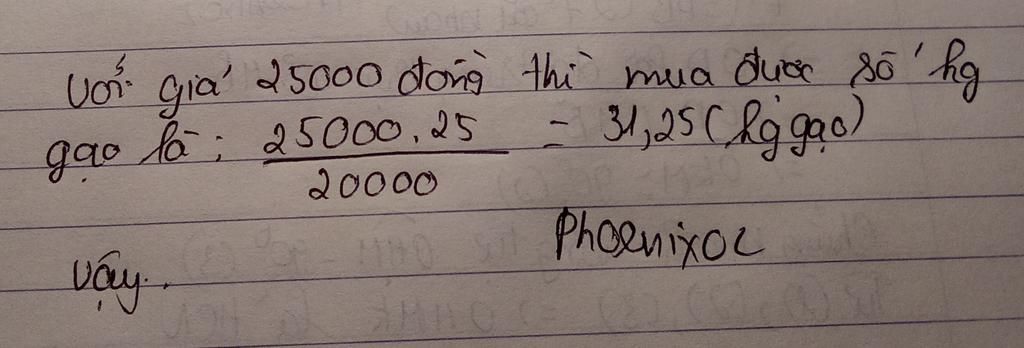 Với giá 25000 đồng thì mua được số kg
gạo là: 25000.25 / 20000 = 31,25 (kg gạo)
Vậy..
Phoenixoc